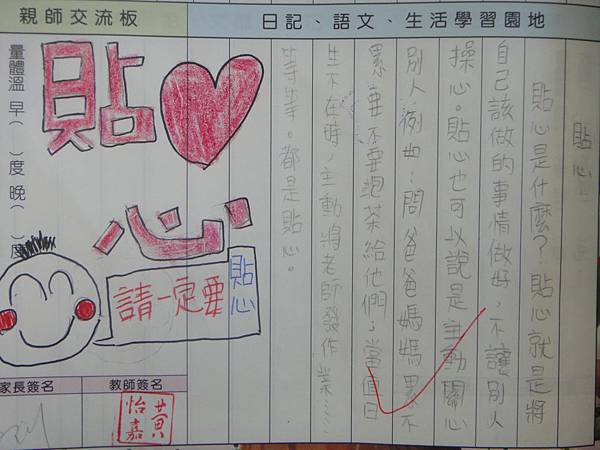 親師交流板
日記、語文、生活學習園地
貼心
貼心是什麼？貼心就是將
自己該做的事情做好，不讓別人
操心。貼心也可以說是主動關心
別人例如：問爸爸媽媽累不
累要不要泡茶給他們；當值日
生不在時，主動將老師發作業……
等等。都是貼心。
量體溫 早（ ）度 晚（ ）度
貼
心
請一定要貼心
家長簽名
教師簽名
黃怡嘉